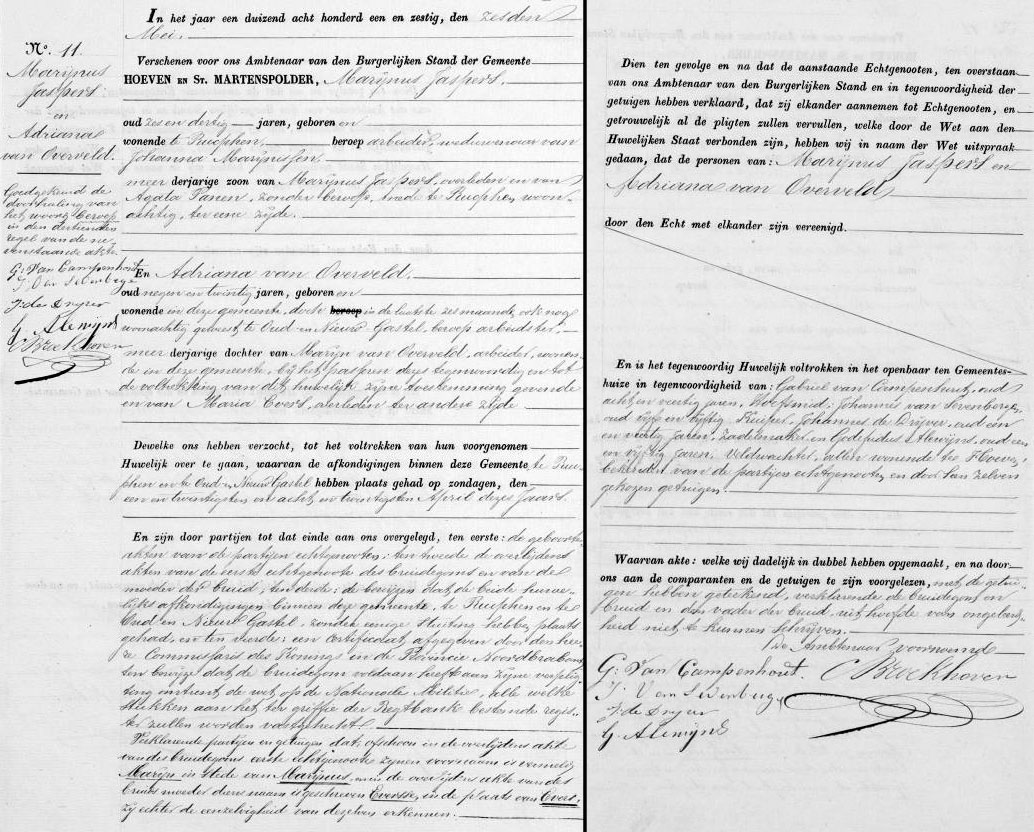 In het jaar een duizend acht honderd een en zestig, den zesden
Mei.
N.º 11.
Marijnus
Jaspers
en
Adriana
van Overveld.
Goedgekeurd de
doorhaling van
het woord beroep
in den dertienden
regel van de ne-
venstaande akte.
G. Van Campenhout
J. V den Sevenberge
J: de Dryver
G Alewijns
C Broekhoven
Verschenen voor ons Ambtenaar van den Burgerlijken Stand der Gemeente
HOEVEN EN ST. MARTENSPOLDER, Marijnus Jaspers.
oud zes en dertig jaren, geboren en
wonende te Rucphen, beroep arbeider, weduwenaar van
Johanna Marijnissen.
meer derjarige zoon van Marijnus Jaspers, overleden en van
Agata Panen, zonder beroep, mede te Rucphen woon-
achtig, ter eene zijde.
En Adriana van Overveld.
oud negen en twintig jaren, geboren en
wonende in deze gemeente, doch beroep in de laatste zes maande, ook nog
woonachtig geweest te Oud en Nieuw Gastel, beroep arbeidster.
meer derjarige dochter van Marijn van Overveld, arbeider, wonen-
de in deze gemeente, bij het passeren dezes tegenwoordig en tot
de voltrekking van dit huwelijk zijne toestemming gevende
en van Maria Evers, overleden ter andere zijde
Dewelke ons hebben verzocht, tot het voltrekken van hun voorgenomen
Huwelijk over te gaan, waarvan de afkondigingen binnen deze Gemeente, te Ruc-
phen en te Oud en Nieuw Gastel hebben plaats gehad op zondagen, den
een en twintigsten en acht en twintigsten April dezes jaars.
En zijn door partijen tot dat einde aan ons overgelegd, ten eerste: de geboorte
akten van de partijen echtgenooten: ten tweede de overlijdens
akten van de eerste echtgenoote des bruidegoms en van de
moeder der bruid; ten derde: de bewijzen dat de beide huwe-
lijks afkondigingen binnen deze gemeente, te Rucphen en te
Oud en Nieuw Gastel, zonder eenige stuiting hebben plaats
gehad, en ten vierde: een certificaat, afgegeven door den hee-
re Commissaris des Konings in de Provincie Noordbrabant
ten bewijze dat de bruidegom voldaan heeft aan zijne verplig-
ting omtrent de wet op de Nationale Militie, alle welke
stukken aan het ter griffie der Regtbank berustende regis-
ter zullen worden vastgehecht
Verklarende partijen en getuigen dat, ofschoon in de overlijdens akte
van des bruidegoms eerste echtgenoote zijnen voornaam is vermeld
Marijn in stede van Marijnus en in de overlijdens akte van des
bruids moeder dier naam is geschreven Eversse, in de plaats van Evers,
zij echter de eenzelvigheid van dezelven erkennen.
Dien ten gevolge en na dat de aanstaande Echtgenooten, ten overstaan
van ons Ambtenaar van den Burgerlijken Stand en in tegenwoordigheid der
getuigen hebben verklaard, dat zij elkander aannemen tot Echtgenooten, en
getrouwelijk al de pligten zullen vervullen, welke door de Wet aan den
Huwelijken Staat verbonden zijn, hebben wij in naam der Wet uitspraak
gedaan, dat de personen van: Marijnus Jaspers en
Adriana van Overveld
door den Echt met elkander zijn vereenigd.
En is het tegenwoordig Huwelijk voltrokken in het openbaar ten Gemeentes-
huize in tegenwoordigheid van: Gabriel van Campenhout, oud
acht en veertig jaren, Hoefsmid; Johannes van Sevenberge,
oud vijf en vijftig, Johannes de Drijver, oud een
en veertig jaren, Zadelmaker en Godefridus Alewijns, oud een
en vijftig jaren, Veldwachter, allen wonende te Hoeven,
bekenden van de partijen echtgenooten en door hen zelven
gekozen getuigen.
Waarvan akte: welke wij dadelijk in dubbel hebben opgemaakt, en na door
ons aan de comparanten en de getuigen te zijn voorgelezen, met de getui-
gen hebben geteekend, verklarende de bruidegom en
bruid en den vader der bruid, uit hoofde van ongeleerd-
heid niet te kunnen schrijven.
De Ambtenaar voornoemd
G. Van Campenhout. C Broekhoven
J. V den Sevenberge
J: de Dryver
G Alewijns